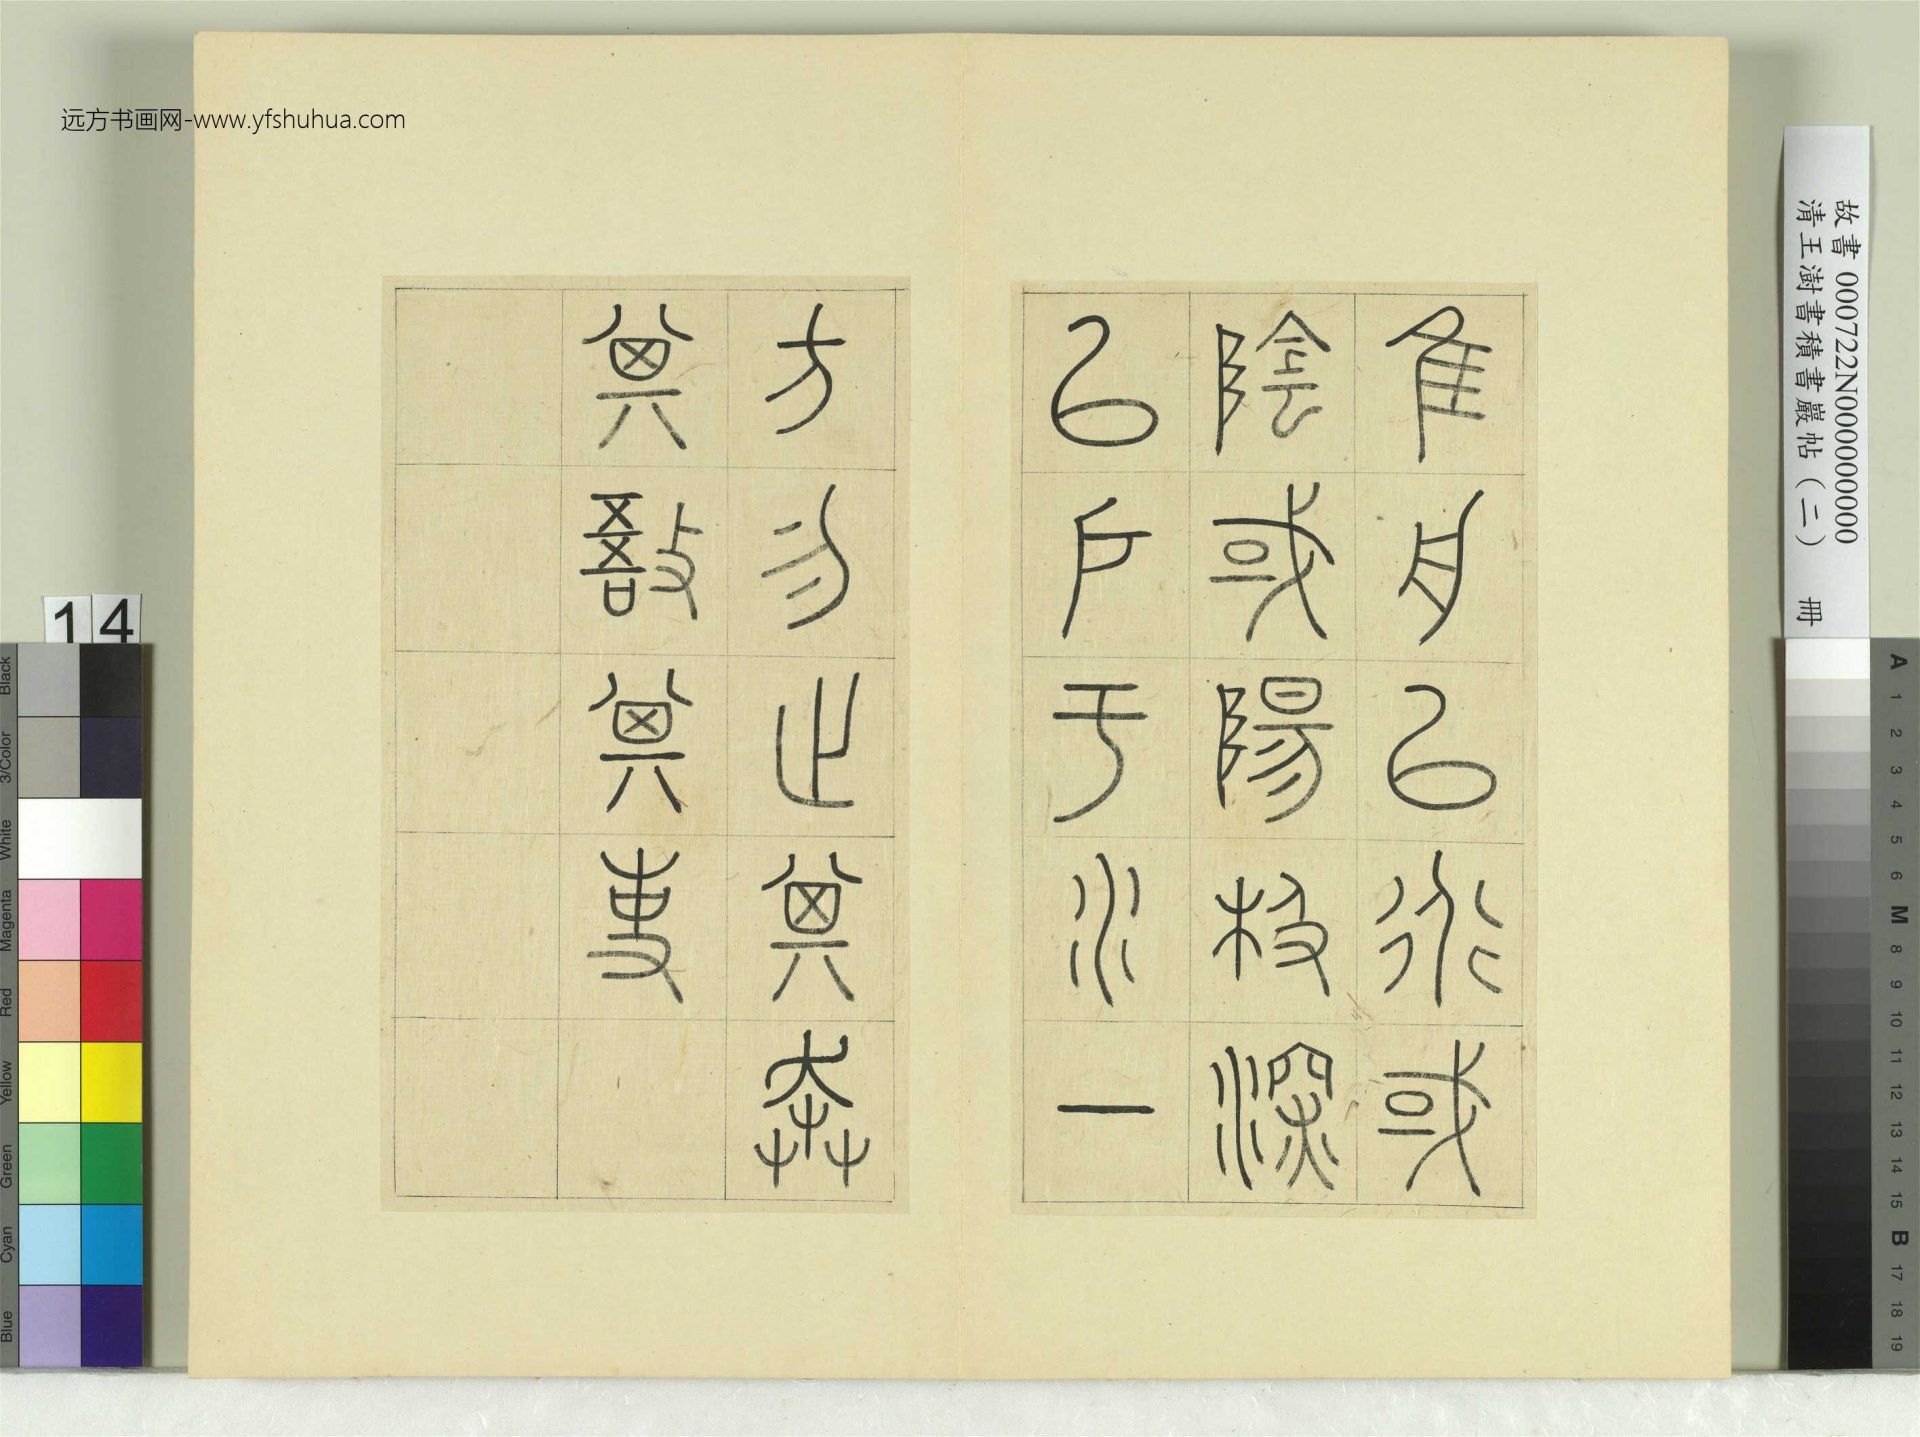 远方书画网-www.yfshuhua.com
隹舟以行或
陰或陽极深
以戶于水一
方勿止其奔
其敔其事
故書 000722N000000000
清王澍書積書巖帖（二） 冊
14
Black
3/Color
White
Magenta
Red
Yellow
Green
Cyan
Blue
A
1
2
3
4
5
6
M
8
9
10
11
12
13
14
15
B
17
18
19